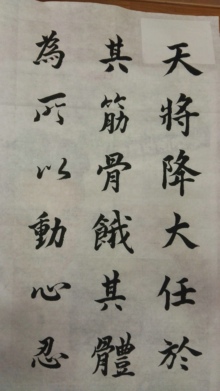 天將降大任於
其筋骨餓其體
為所以動心忍